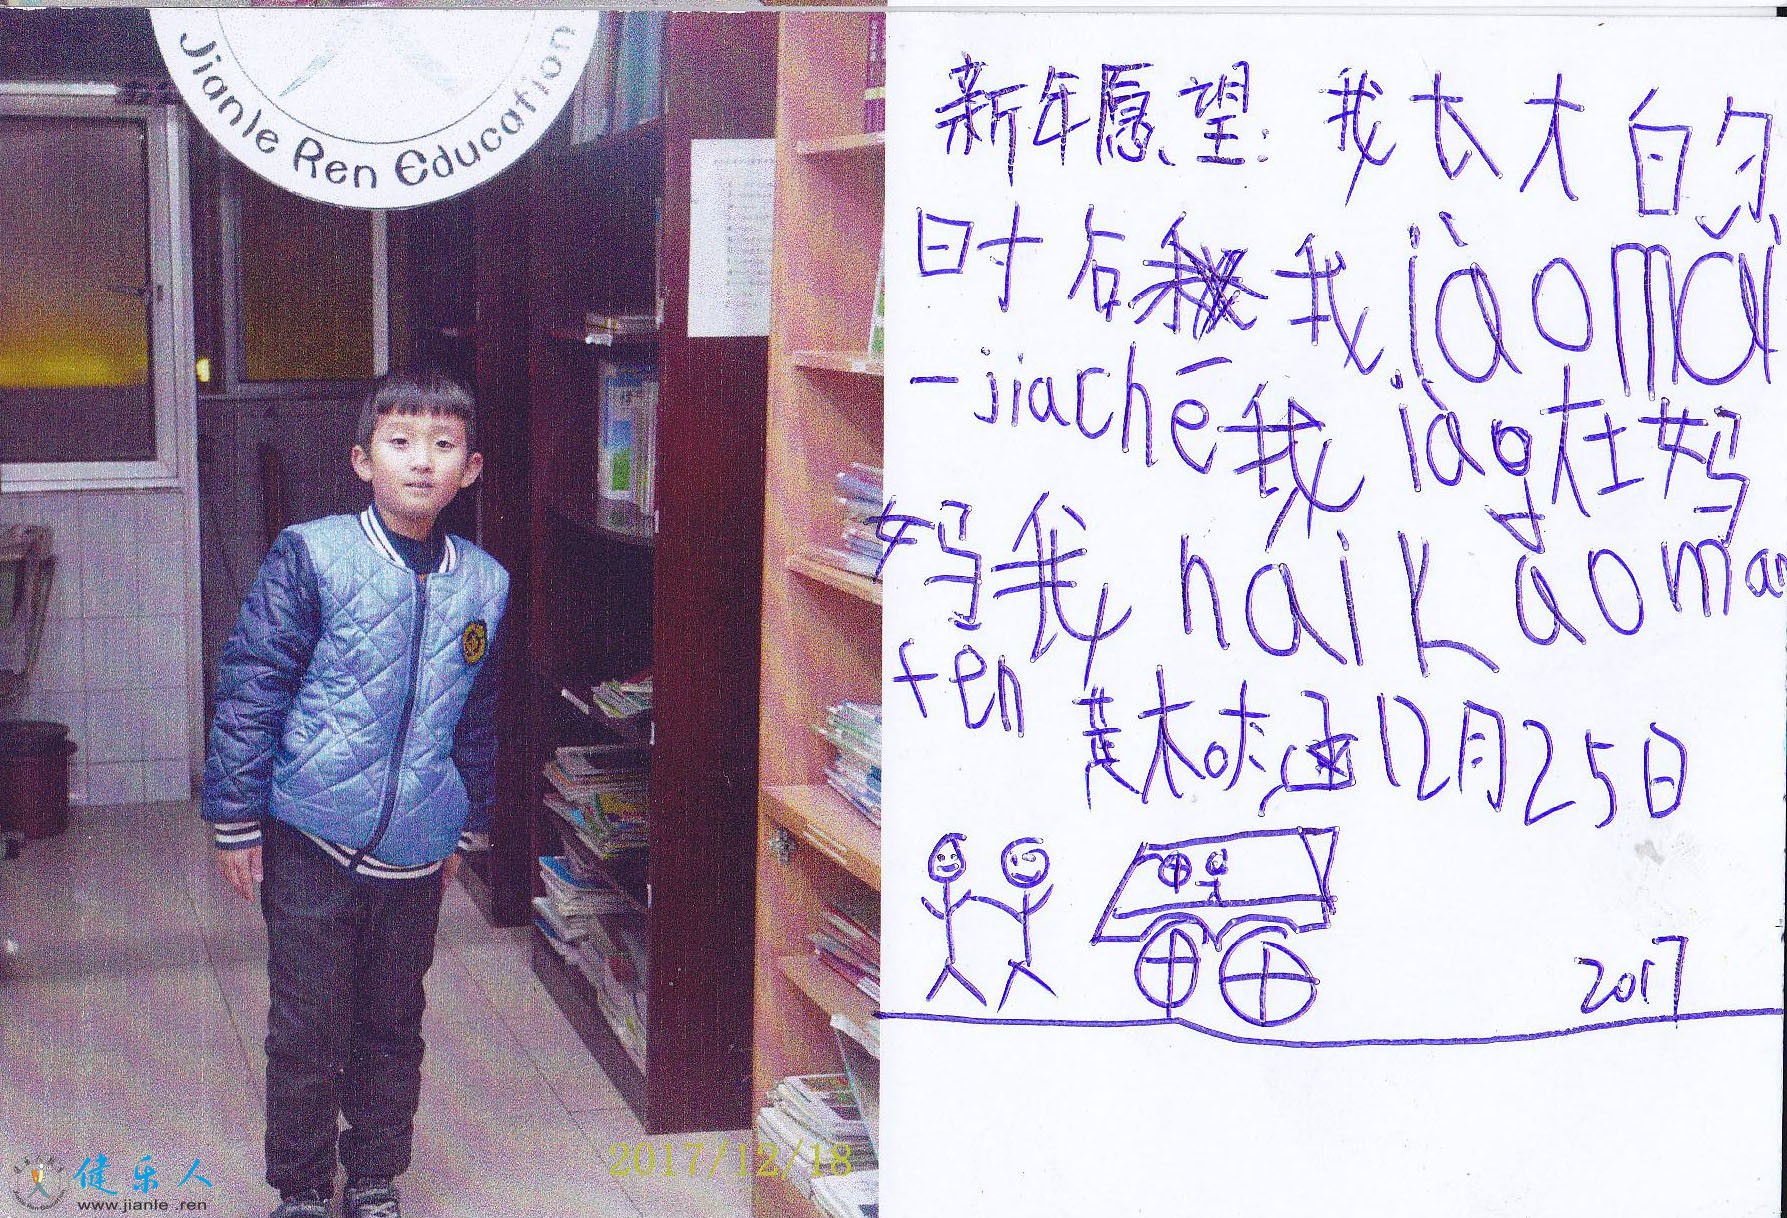 Jianle Ren Education
新年愿望:我长大的
时右我jiàomǎi
一jiachē我iào在妈
妈我 hai kǎoman
fen
12月25日
2017
2017/12/18
健乐人
www.jianle .ren